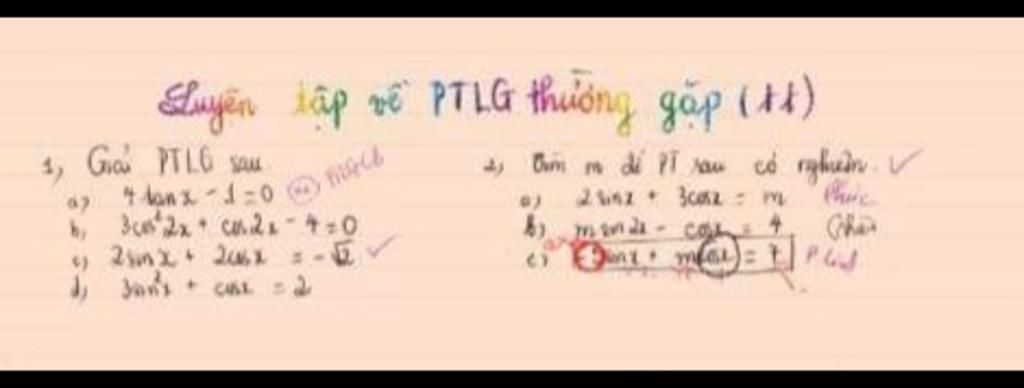 Luyện tập về PTLG thường gặp (11)
1, Giải PTLG sau
a) 4tanx - 1 = 0
b, 3cos²2x + cos2x - 4 = 0
c) 2sinx + 2cosx = -√2
d, 3sin²x + cosx = 2
2, Tìm m để PT sau có nghiệm.
a) 2sinx + 3cosx = m
b) msin2x - cosx = 4
c) sinx + mcosx = 7